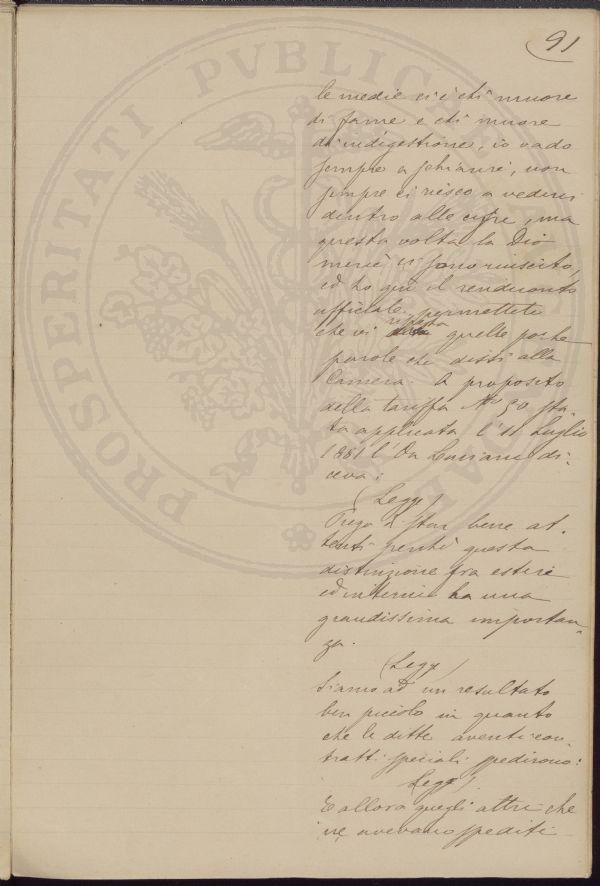 91
le medie ci è chi muore
di fame e chi muore
di indigestione, io vado
sempre a schiarire, non
sempre ci riesco a vederci
dentro alle cifre, ma
questa volta la Dio
mercè ci sono riuscito,
ed ho quì il rendiconto
ufficiale, permettete
che vi ripeta quelle poche
parole che dissi alla
Camera. A proposito
della tariffa No 50 sta-
ta applicata l'11 Luglio
1881 l'On Luciani di-
ceva:
(Legge)
Prego di star bene at-
tenti perchè questa
distinzione fra esteri
ed interni ha una
grandissima importan-
za.
(Legge)
Siamo ad un resultato
ben piccolo in quanto
che le ditte aventi con-
tratti speciali spedirono:
(Legge)
E allora quegli altri che
ne avevano spediti
PROSPERITATI PVBLICAE